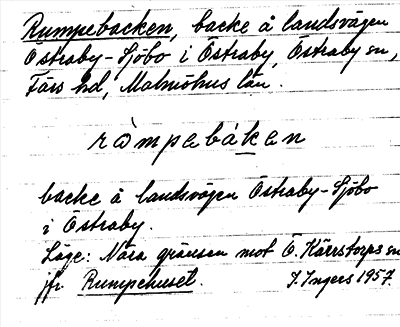 Rumpebacken, backe å landsvägen
Östraby-Sjöbo i Östraby, Östraby sn,
Färs hd, Malmöhus län.
ròmpebáken
backe å landsvägen Östraby-Sjöbo
i Östraby.
Läge: Nära gränsen mot Ö. Kärrstorps sn
jfr Rumpehuset.
I. Ingers 1957.